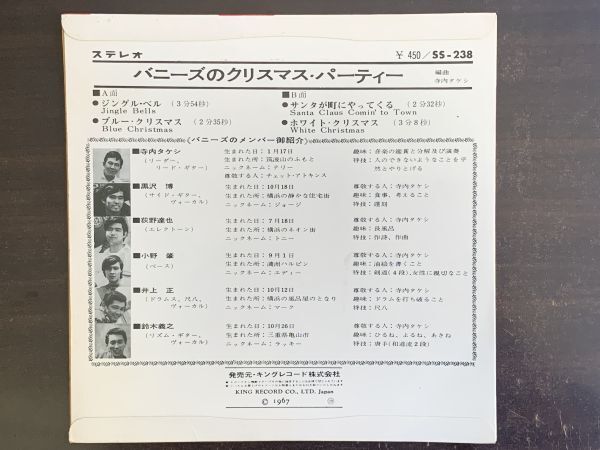 ステレオ
¥450/SS-238
バニーズのクリスマス・パーティー
編曲
寺内タケシ
■A面
●ジングル・ベル (3分54秒)
Jingle Bells
●ブルー・クリスマス (2分35秒)
Blue Christmas
■B面
●サンタが町にやってくる (2分32秒)
Santa Claus Comin' to Town
●ホワイト・クリスマス (3分8秒)
White Christmas
〈バニーズのメンバー御紹介〉
■寺内タケシ
(リーダー、
リード・ギター)
生まれた日:1月17日
生まれた所:筑波山のふもと
ニックネーム:テリー
尊敬する人:チェット・アトキンス
趣味:音楽の鑑賞と分解及び演奏
特技:人のできないようなことを平
然とやりとげる
■黒沢 博
(サイド・ギター、
ヴォーカル)
生まれた日:10月18日
生まれた所:横浜の静かな住宅街
ニックネーム:ジョージ
尊敬する人:寺内タケシ
趣味:食事、考えること
特技:遅刻
■荻野達也
(エレクトーン)
生まれた日:7月18日
生まれた所:横浜のネオン街
ニックネーム:トニー
尊敬する人:寺内タケシ
趣味:長風呂
特技:作詩、作曲
■小野 肇
(ベース)
生まれた日:9月1日
生まれた所:満洲ハルピン
ニックネーム:エディー
尊敬する人:寺内タケシ
趣味:油絵を書くこと
特技:剣道(4段)、女性に親切なこと
■井上 正
(ドラムス、尺八、
ヴォーカル)
生まれた日:10月12日
生まれた所:横浜の風呂屋のとなり
ニックネーム:マーク
尊敬する人:寺内タケシ
趣味:ドラムを打ち破ること
特技:尺八
■鈴木義之
(リズム・ギター、
ヴォーカル)
生まれた日:10月26日
生まれた所:三重県亀山市
ニックネーム:ラッキー
尊敬する人:寺内タケシ
趣味:ひるね、よるね、あさね
特技:唐手(和道流2段)
発売元・キングレコード株式会社
KING RECORD CO., LTD. Japan
© 1967